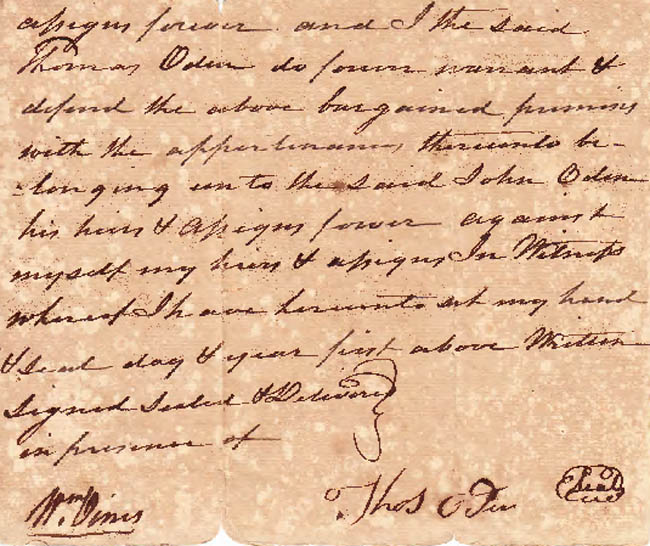 assigns forever and I the said
Thomas Oden do forever warrant &
defend the above bargained premises
with the appertenances thereunto be-
-longing unto the said John Oden
his heirs & assigns forever against
myself my heirs & assigns In Witness
whereof I have hereunto set my hand
& seal day & year first above Written
Signed Sealed & Delivered
in presence of
Thos Oden Seal
Wm. Vines